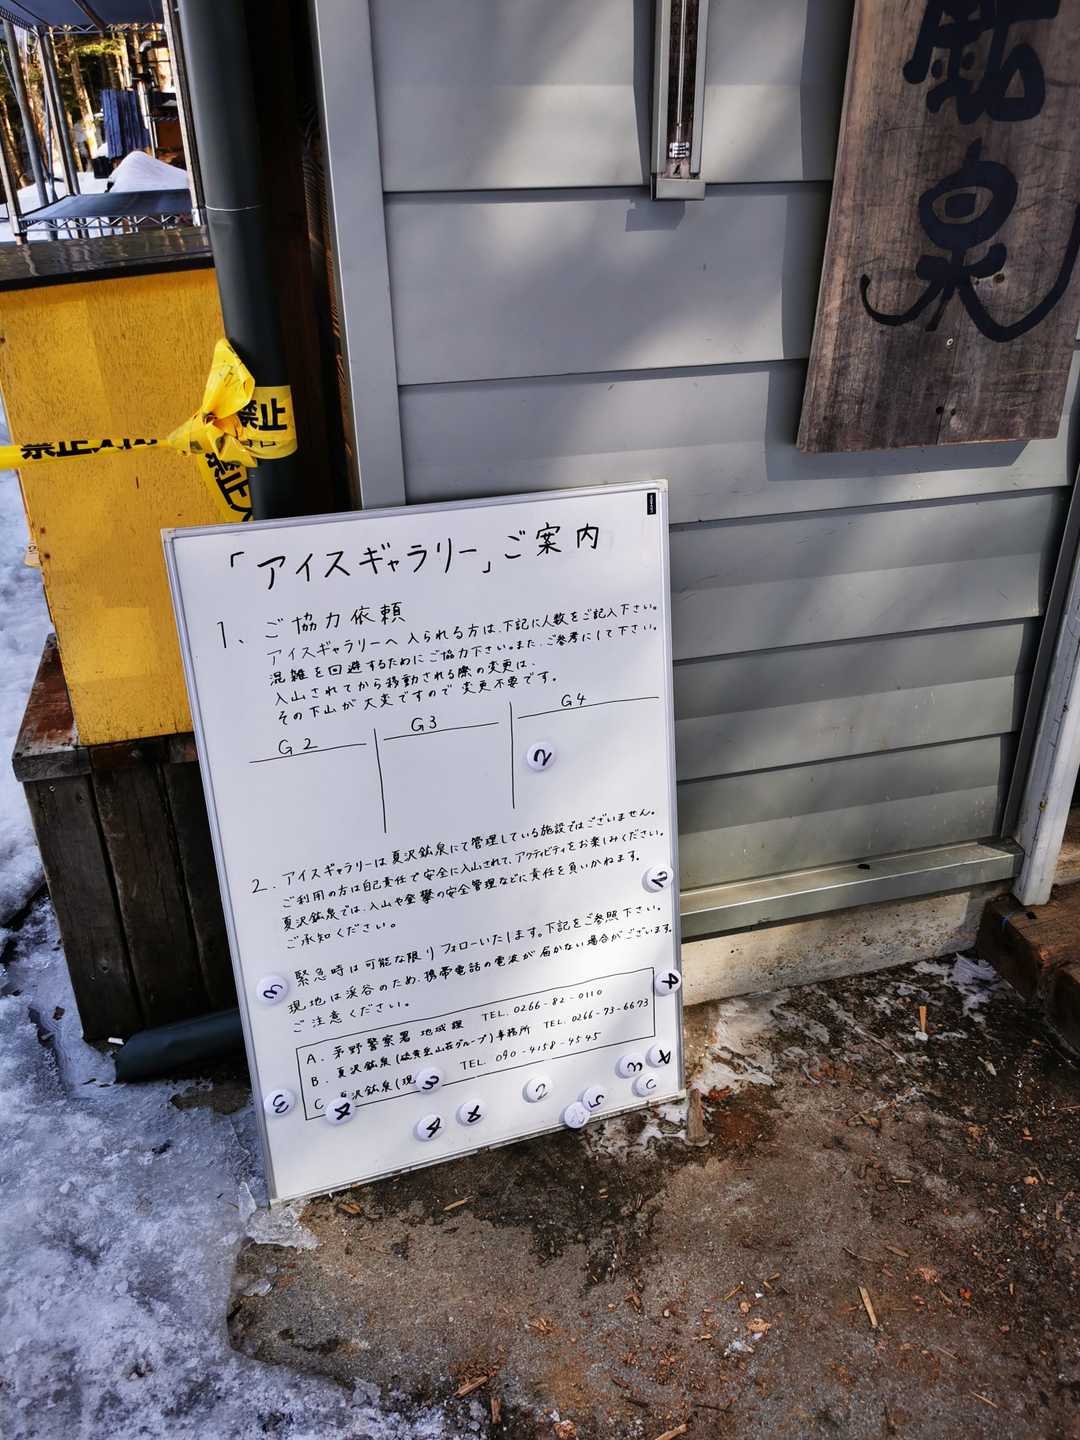 鉱泉
禁止
禁止入内
禁止
「アイスギャラリー」ご案内
1、ご協力依頼
アイスギャラリーへ入られる方は、下記に人数をご記入下さい。
混雑を回避するためにご協力下さい。また、ご参考にして下さい。
入山されてから移動される際の変更は、
その下山が大変ですので変更不要です。
G2 G3 G4
2
2. アイスギャラリーは夏沢鉱泉にて管理している施設ではございません。
ご利用の方は自己責任で安全に入山されて、アクティビティをお楽しみください。
夏沢鉱泉では、入山や登攀の安全管理などに責任を負いかねます。
ご承知ください。
緊急時は可能な限りフォローいたします。下記をご参照下さい。
現地は渓谷のため、携帯電話の電波が届かない場合がございます。
ご注意ください。
A. 茅野警察署 地域課 TEL. 0266-82-0110
B. 夏沢鉱泉(硫黄岳山荘グループ)事務所 TEL. 0266-73-6673
C. 夏沢鉱泉(現 TEL. 090-4158-4545
3
4
3
4
3
4
4
2
5